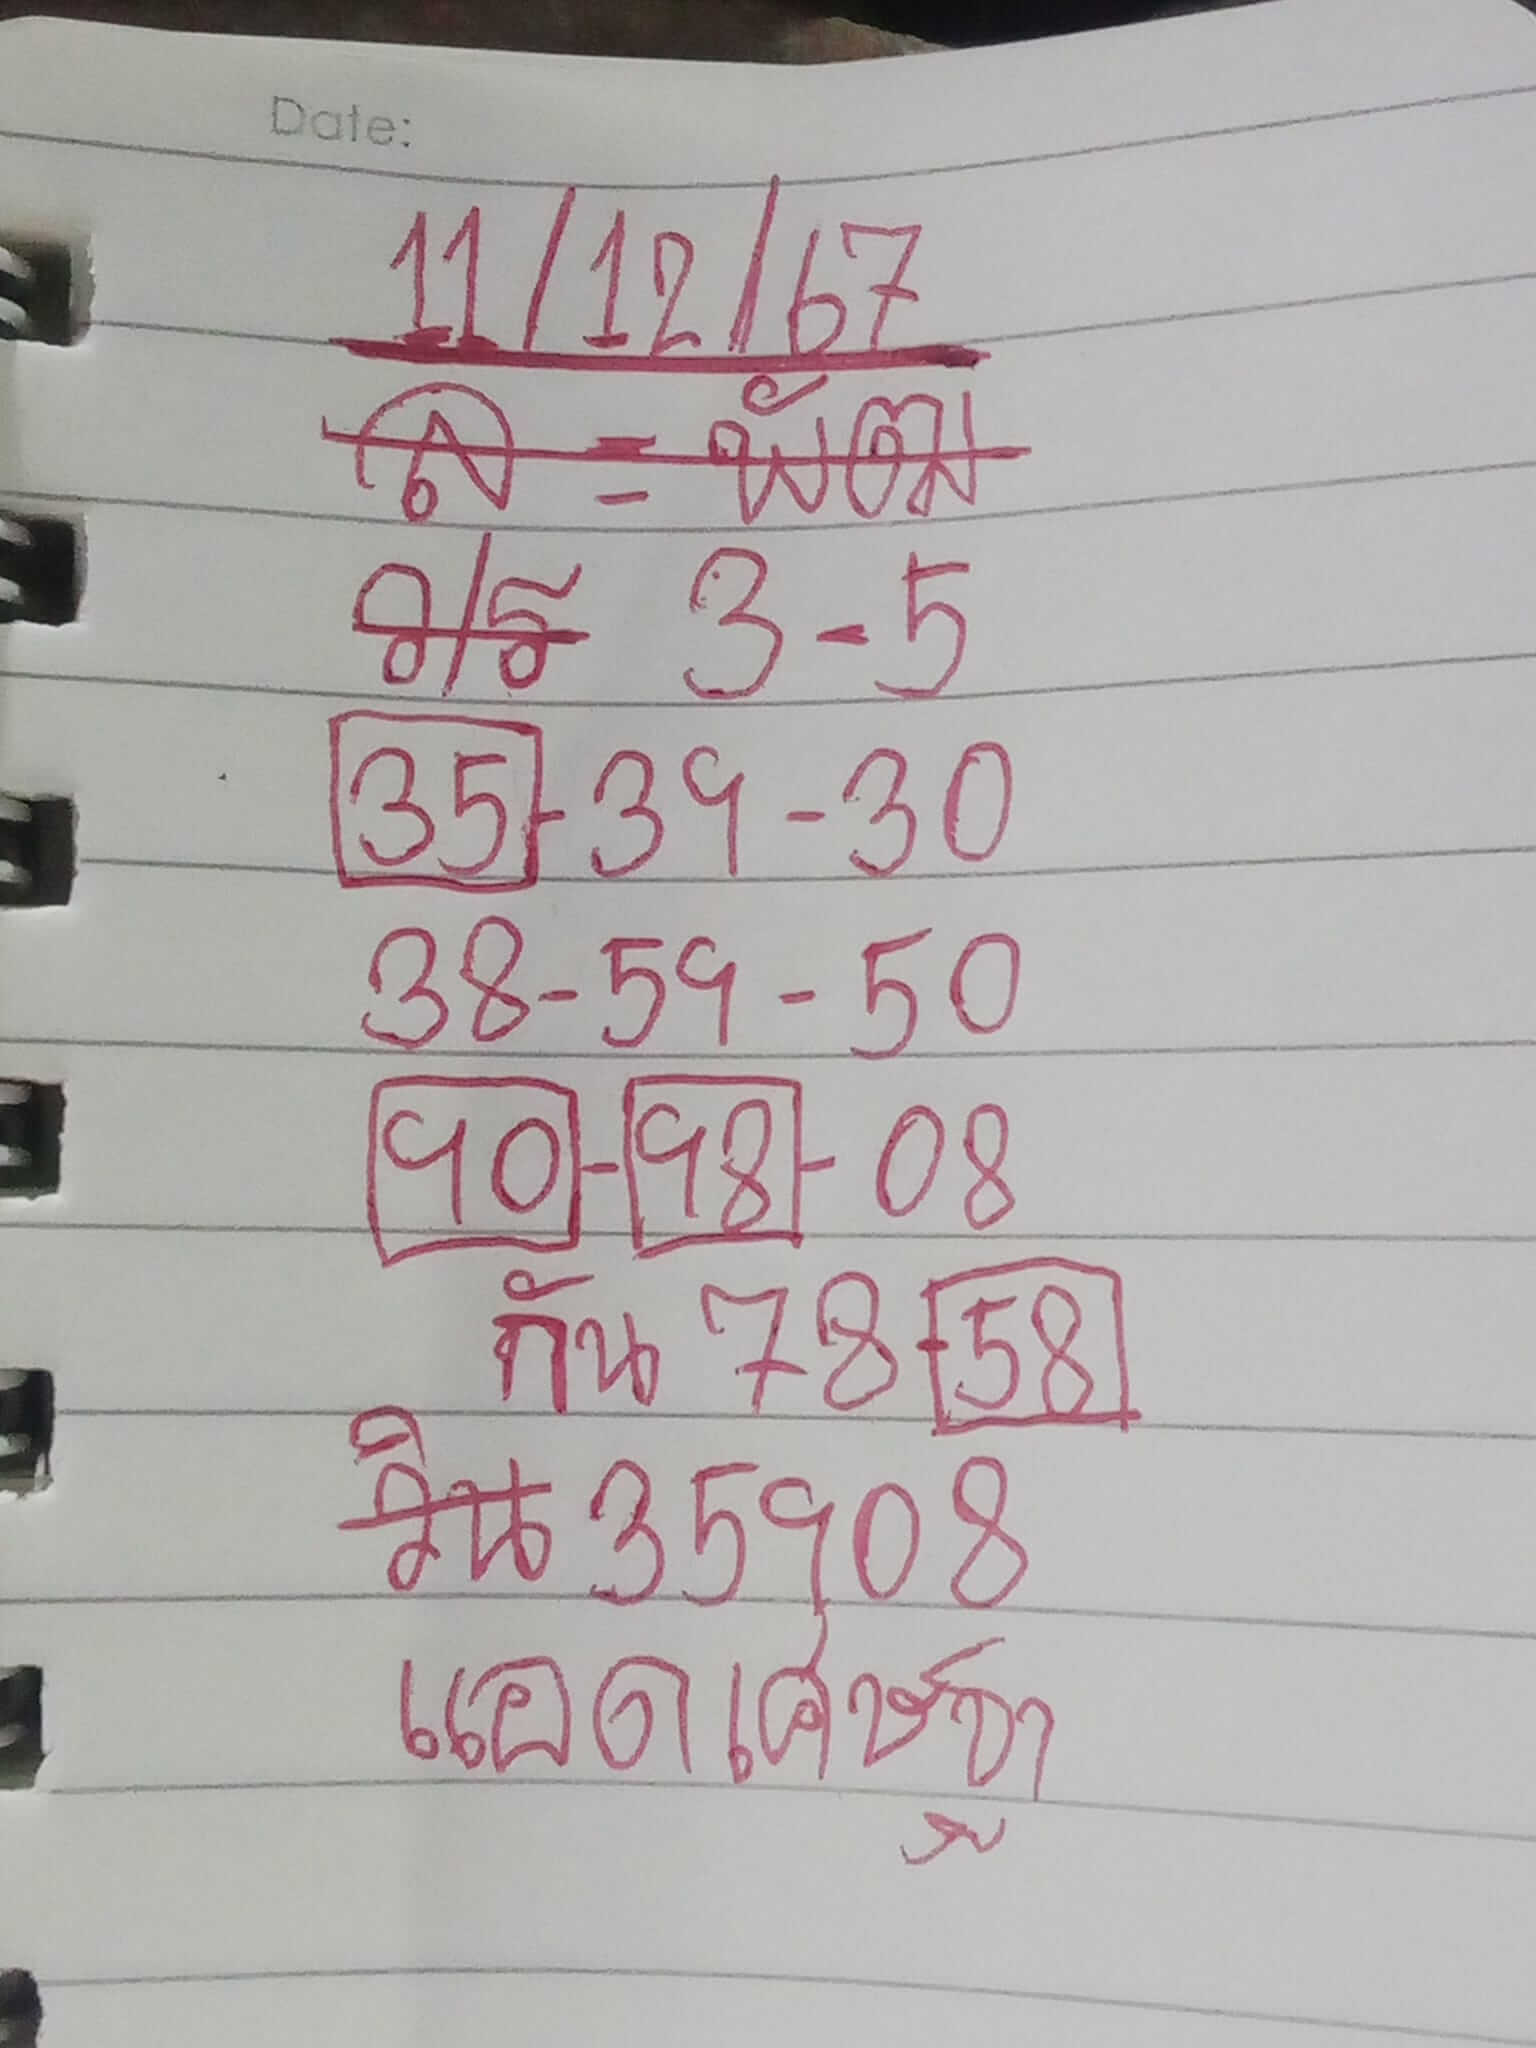 Date:
11/12/67
ล = พัฒ
ว/ร 3-5
35-39-30
38-59-50
90-98-08
กัน 78-58
วิน 35908
แอดเศษฐา